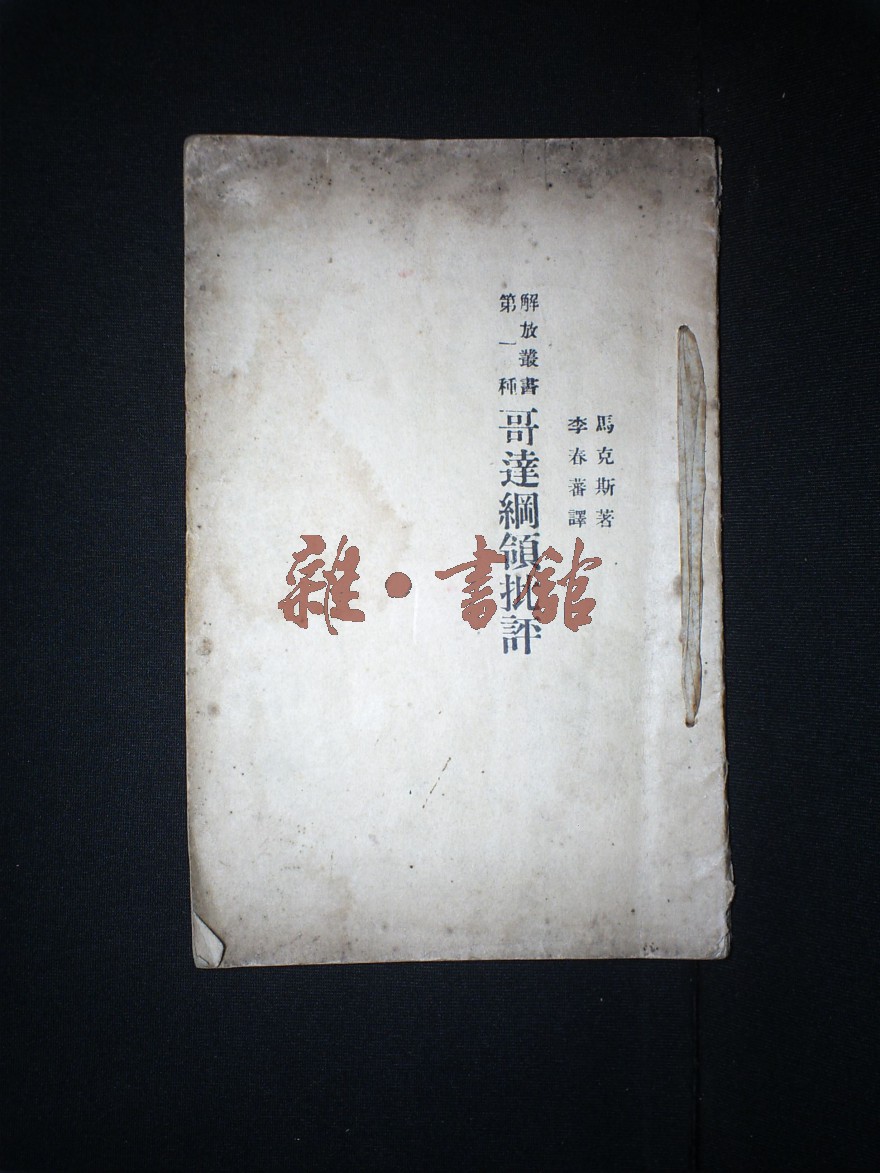 馬克斯著
李春蕃譯
解放叢書
第一種
哥達綱領批評
雜·書館